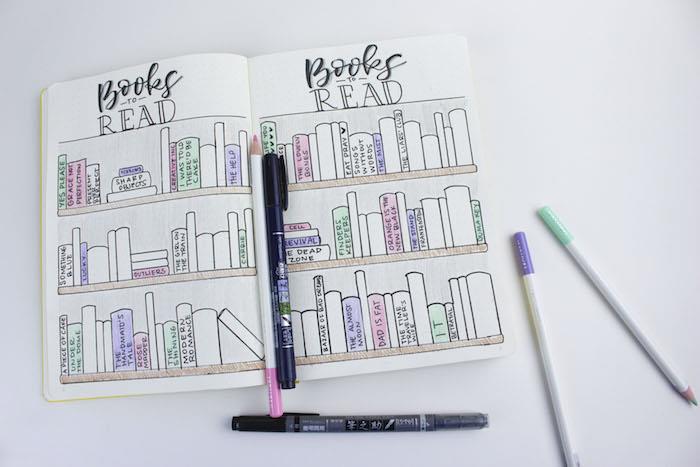 Books
TO
READ
YES PLEASE
GRACE NOT
PERFECTION
PRESENT
PERFECT
SHARP
OBJECTS
CREATIVE
I WAS TOLD
THERE'D BE
CAKE
THE HELP
SOMETHING
BLUE
LUCKY
OUTLIERS
THE GIRL ON
THE TRAIN
CARRIE
A PIECE OF CAKE
UNDER
THE DOME
THE
HANDMAID'S
TALE
ROSE
MADDER
THE
SHINING
MODERN
ROMANCE
Books
TO
READ
YOU
THE LOVELY
BONES
EAT PRAY
SONGS
WITHOUT
WORDS
THE MIST
THE LIARS' CLUB
CELL
REVIVAL
THE DEAD
ZONE
FINDERS
KEEPERS
ORANGE IS THE
NEW BLACK
THE STAND
BAZAAR OF BAD DREAMS
THE ALMOST
MOON
DAD IS FAT
THE TIME
TRAVELER'S
WIFE
IT
BETRAYAL
筆之助